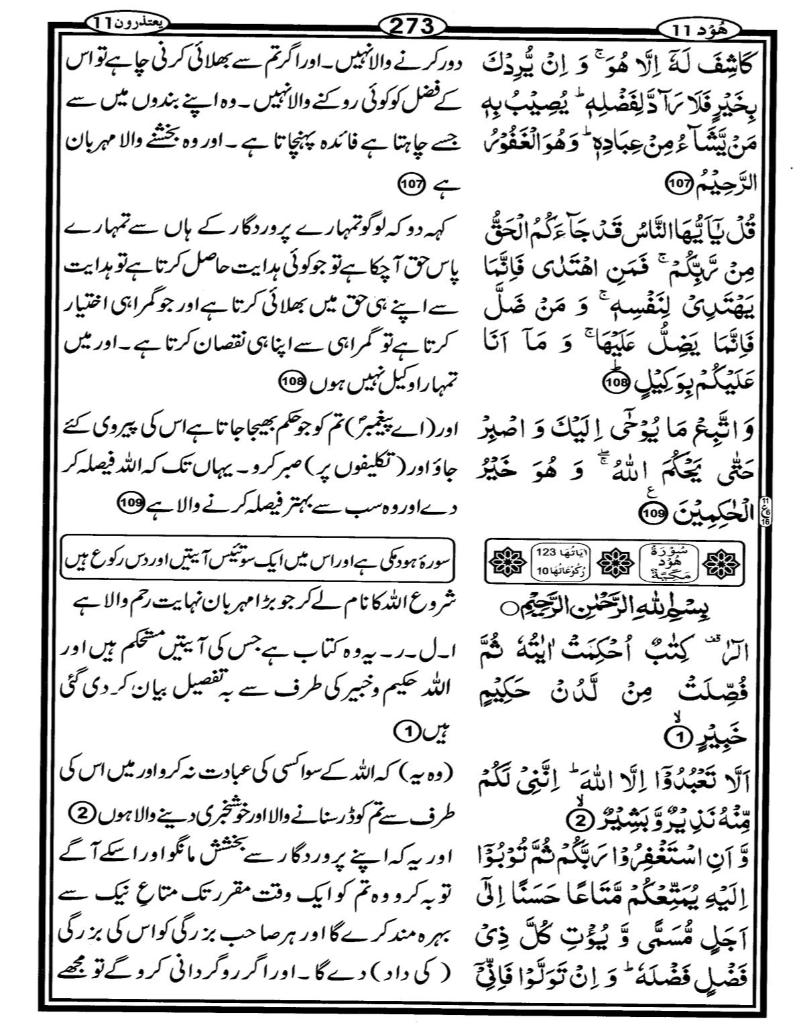 ھُوۡد 11
273
یعتذرون 11
کَاشِفَ لَہٗۤ اِلَّا ھُوَ ۚ وَ اِنۡ یُّرِدۡکَ
بِخَیۡرٍ فَلَا رَآدَّ لِفَضۡلِہٖ ؕ یُصِیۡبُ بِہٖ
مَنۡ یَّشَآءُ مِنۡ عِبَادِہٖ ؕ وَھُوَ الۡغَفُوۡرُ
الرَّحِیۡمُ 107
قُلۡ یٰۤاَیُّھَا النَّاسُ قَدۡ جَآءَکُمُ الۡحَقُّ
مِنۡ رَّبِّکُمۡ ۚ فَمَنِ اھۡتَدٰی فَاِنَّمَا
یَھۡتَدِیۡ لِنَفۡسِہٖ ۚ وَ مَنۡ ضَلَّ
فَاِنَّمَا یَضِلُّ عَلَیۡھَا ۚ وَ مَاۤ اَنَا
عَلَیۡکُمۡ بِوَکِیۡلٍ ؕ 108
وَاتَّبِعۡ مَا یُوۡحٰۤی اِلَیۡکَ وَ اصۡبِرۡ
حَتّٰی یَحۡکُمَ اللّٰہُ ۚۖ وَ ھُوَ خَیۡرُ
الۡحٰکِمِیۡنَ 109 ع
سُوۡرَۃُ ھُوۡد مَکِّیَّۃٌ
اٰیَاتُھَا 123
رُکُوۡعَاتُھَا 10
بِسۡمِ اللّٰہِ الرَّحۡمٰنِ الرَّحِیۡمِ ○
الٓرٰ ۟ قف کِتٰبٌ اُحۡکِمَتۡ اٰیٰتُہٗ ثُمَّ
فُصِّلَتۡ مِنۡ لَّدُنۡ حَکِیۡمٍ
خَبِیۡرٍ ۙ 1
اَلَّا تَعۡبُدُوۡۤا اِلَّا اللّٰہَ ؕ اِنَّنِیۡ لَکُمۡ
مِّنۡہُ نَذِیۡرٌ وَّ بَشِیۡرٌ ۙ 2
وَّ اَنِ اسۡتَغۡفِرُوۡا رَبَّکُمۡ ثُمَّ تُوۡبُوۡۤا
اِلَیۡہِ یُمَتِّعۡکُمۡ مَّتَاعًا حَسَنًا اِلٰۤی
اَجَلٍ مُّسَمًّی وَّ یُؤۡتِ کُلَّ ذِیۡ
فَضۡلٍ فَضۡلَہٗ ؕ وَ اِنۡ تَوَلَّوۡا فَاِنِّیۡۤ
دور کرنے والا نہیں۔ اور اگر تم سے بھلائی کرنی چاہے تو اس
کے فضل کو کوئی روکنے والا نہیں۔ وہ اپنے بندوں میں سے
جسے چاہتا ہے فائدہ پہنچاتا ہے۔ اور وہ بخشنے والا مہربان
ہے 107
کہہ دو کہ لوگو تمہارے پروردگار کے ہاں سے تمہارے
پاس حق آ چکا ہے تو جو کوئی ہدایت حاصل کرتا ہے تو ہدایت
سے اپنے ہی حق میں بھلائی کرتا ہے اور جو گمراہی اختیار
کرتا ہے تو گمراہی سے اپنا ہی نقصان کرتا ہے۔ اور میں
تمہارا وکیل نہیں ہوں 108
اور (اے پیغمبرؐ) تم کو جو حکم بھیجا جاتا ہے اس کی پیروی کئے
جاؤ اور (تکلیفوں پر) صبر کرو۔ یہاں تک کہ اللہ فیصلہ کر
دے اور وہ سب سے بہتر فیصلہ کرنے والا ہے 109
سورۂ ہود مکی ہے اور اس میں ایک سو تئیس آیتیں اور دس رکوع ہیں
شروع اللہ کا نام لے کر جو بڑا مہربان نہایت رحم والا ہے
ا۔ل۔ر۔ یہ وہ کتاب ہے جس کی آیتیں مستحکم ہیں اور
اللہ حکیم و خبیر کی طرف سے بہ تفصیل بیان کر دی گئی
ہیں 1
(وہ یہ) کہ اللہ کے سوا کسی کی عبادت نہ کرو اور میں اس کی
طرف سے تم کو ڈر سنانے والا اور خوشخبری دینے والا ہوں 2
اور یہ کہ اپنے پروردگار سے بخشش مانگو اور اسکے آگے
توبہ کرو وہ تم کو ایک وقت مقرر تک متاعِ نیک سے
بہرہ مند کرے گا اور ہر صاحب بزرگی کو اس کی بزرگی
(کی داد) دے گا۔ اور اگر روگردانی کرو گے تو مجھے